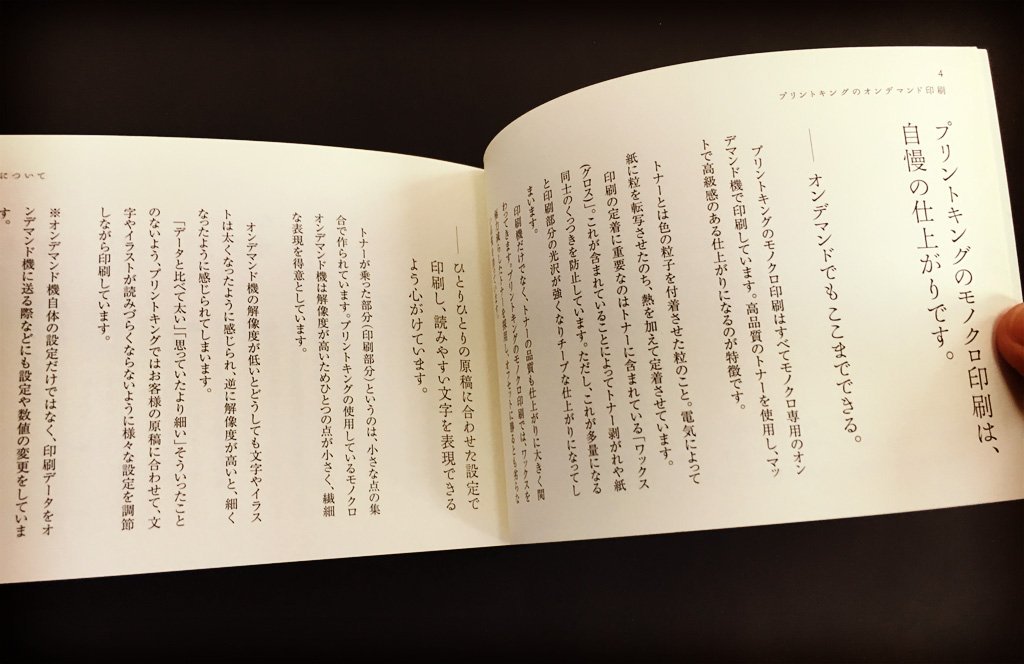 4
プリントキングのオンデマンド印刷
プリントキングのモノクロ印刷は、
自慢の仕上がりです。
――オンデマンドでも ここまでできる。
プリントキングのモノクロ印刷はすべてモノクロ専用のオン
デマンド機で印刷しています。高品質のトナーを使用し、マッ
トで高級感のある仕上がりになるのが特徴です。
トナーとは色の粒子を付着させた粒のこと。電気によって
紙に粒を転写させたのち、熱を加えて定着させています。
印刷の定着に重要なのはトナーに含まれている「ワックス
(グロス)」。これが含まれていることによってトナー剥がれや紙
同士のくっつきを防止しています。ただし、これが多量になる
と印刷部分の光沢が強くなりチープな仕上がりになってし
まいます。
印刷機だけでなく、トナーの品質も仕上がりに大きく関
わってきます。プリントキングのモノクロ印刷では、ワックスを
について
――ひとりひとりの原稿に合わせた設定で
印刷し、読みやすい文字を表現できる
よう心がけています。
トナーが乗った部分(印刷部分)というのは、小さな点の集
合で作られています。プリントキングの使用しているモノクロ
オンデマンド機は解像度が高いためひとつの点が小さく、繊細
な表現を得意としています。
オンデマンド機の解像度が低いとどうしても文字やイラス
トは太くなったように感じられ、逆に解像度が高いと、細く
なったように感じられてしまいます。
「データと比べて太い」「思っていたより細い」そういったこと
のないよう、プリントキングではお客様の原稿に合わせて、文
字やイラストが読みづらくならないように様々な設定を調節
しながら印刷しています。
※オンデマンド機自体の設定だけではなく、印刷データをオ
ンデマンド機に送る際などにも設定や数値の変更をしていま
す。